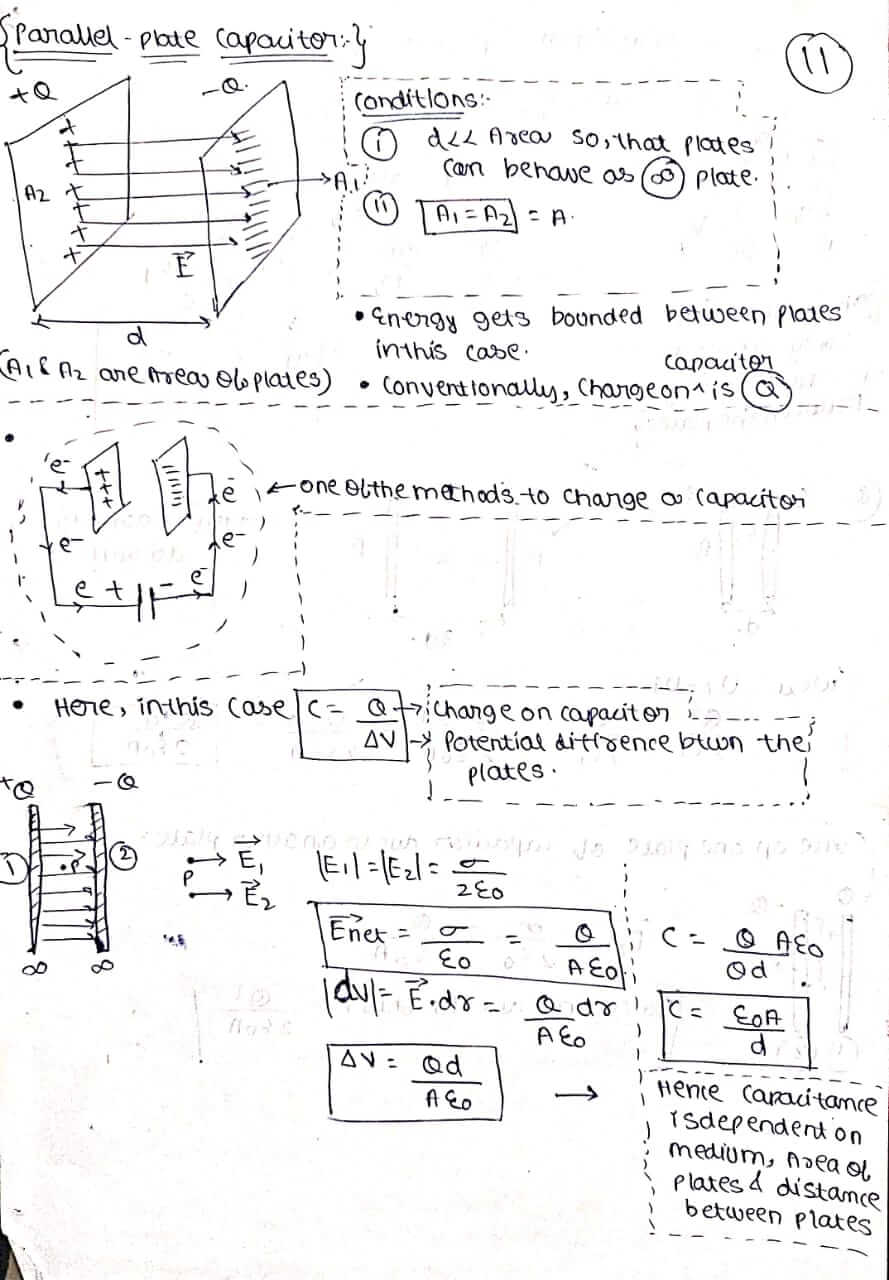 {Parallel-plate Capacitor:-}
11
+Q
-Q.
A2
A1
E⃗
d
(A1 & A2 are Area of plates)
Conditions:-
(i) d<< Area so, that plates
can behave as ∞ plate.
(ii) A1 = A2 = A.
• Energy gets bounded between plates
in this case.
capacitor
• conventionally, Charge on ^ is Q
•
e- e-
e- e-
e + - e-
+++ 
← one of the methods to charge a capacitor
• Here, in this case C = Q/ΔV → Charge on capacitor
→ Potential diffrence btwn the
plates.
+Q -Q
1 .P 2
∞ ∞
P → E⃗1
→ E⃗2
|E1| = |E2| = σ/2ε0
E⃗net = σ/ε0 = Q/Aε0
|dv| = E⃗.dr = Q dr/Aε0
ΔV = Qd/Aε0 →
C = Q Aε0/Qd
C = ε0A/d
Hence Capacitance
is dependent on
medium, Area of
plates & distance
between plates